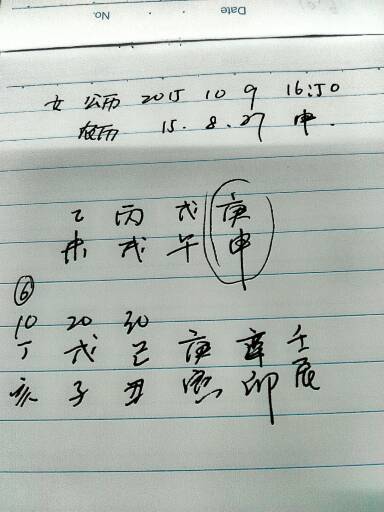 Date
No.
女 公历 2015 10 9 16:50
农历 15.8.27 申.
乙 丙 戊 庚
未 戌 午 申
⑥
10 20 30
丁 戊 己 庚 辛 壬
亥 子 丑 寅 卯 辰